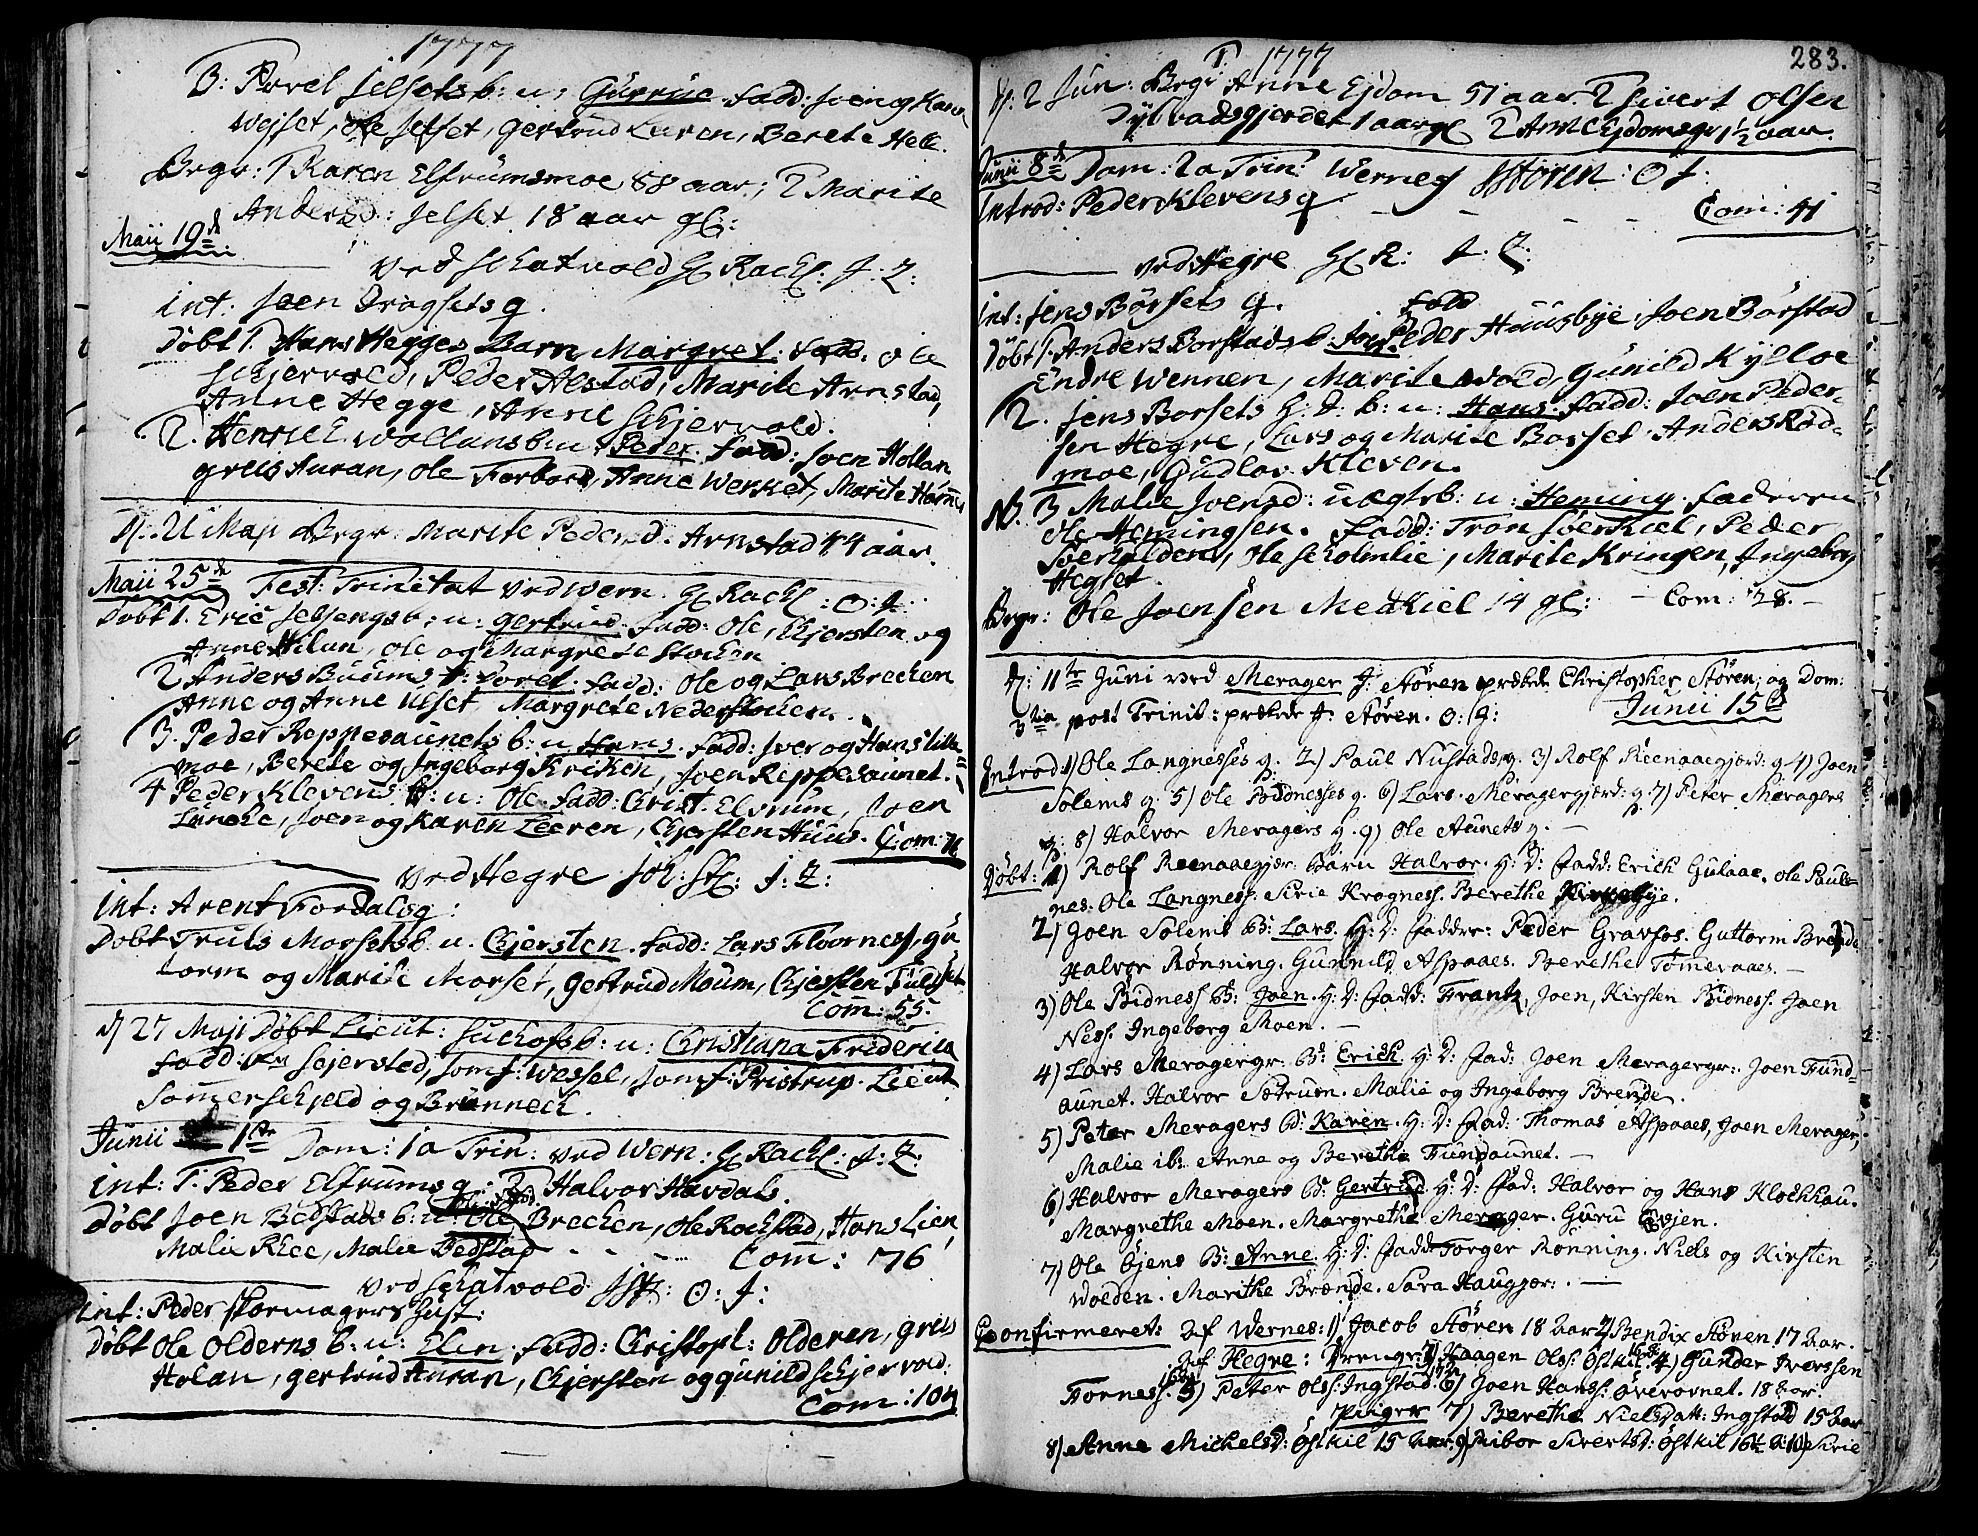 1777
3. Povel Selsets b: u: Gurrue. fadd: Joen og Karen
Wejset, Ole Selset, Gertrud Leeren, Berete Helle.
Begr: 1 Karen Elfrumsmoe 88 aar; 2 Marite
Andersd: Selset 18 aar gl:
Maii 19de
Ved Schatvold H Rachl: J: Z:
Int. Joen Dragsets q.
Døbt 1. Hans Hegges Barn Margret. fadd. Ole
Schjervold, Peder Alstad, Marite Arnstad,
Anne Hegge, Anne Schjervold.
2. Henric Wollans b: u: Peder. fadd: Joen Hollan
greis Auran, Ole Forbord, Anne Werket, Marite
D. 21 Maji Begr. Marite Pedersd. Arnstad 44 aar.
Maii 25de Fest: Trinitat Ved Wern. H Rachl: O: J.
Døbt 1. Eric b: u: Gertrud. fadd: Ole, Chjersten og
Anne Hilan, Ole og Margrete Stochen
2 Anders Buums b: Doret. fadd: Ole og Lars Brechen
Anne og Anne Ulset Margrete Nederstochen.
3. Peder Reppesaunets b: u Hans. fadd: Iver og Hans Lille
moe, Berete og Ingeborg Kriken, Joen Reppesaunet.
4 Peder Klevens b: u: Ole. fadd: Christ. Elvrum, Joen
Lunche, Joen og Karen Leeren, Chjersten Huus. Com: 71
Ved Hegre Joh: St: J: Z:
Int: Arent Fordals q:
Døbt Truls Morsets b. u. Chjersten. fadd: Lars Floornes, Gu
torm og Marite Morset, Gertrud Moum, Chjersten Fuldset
Com: 55.
D 27 Maji Døbt Lieut: b: u: Christiana Friderica
fadd: Sejersted, Jomf: Wessel, Jomf: Pristrup. Lieut
Sommerschjeld og Brønneck.
Junii 1te Dom: 1a Trin: Ved Wern: H Rachl: J: Z:
Int: 1. Peder Elfrums q: 2 Halvor Hærdals.
Døbt Joen Bedstads b: u: Ole Brechen, Ole Rochstad, Hans Lien,
Malie Rhee, Malie Bedstad Com: 76
Ved Schatvold O: J:
Int: Peder Skormagers hust:
Døbt Ole Olderns b: u: Elen. fadd: Christopl: Olderen, greis
Holan, Gertrud Auran, Chjersten og Gunild Schjervold.
Com: 104
1777 283.
D: 2 Jun: Begr 1. Anne Ejdom 51 aar. 2 Sivert Olsen
Dylvadsgjerdet 1 aar gl 1 1/2 aar.
Junii 8de Dom: 2a Trin: Wernes Støren: O J:
Introd: Peder Klevens q Com: 41
Ved Hegre H R: J: Z:
Int: Jens Børsets q. fadd
Døbt 1. Anders Borstads b. Peder Huusbye, Joen Børstad
Endre Wennen, Marite Wold, Gunild Kylloe
2. Jens Borsets H: D: b: u: Hans. fadd: Joen Peder-
sen Hegre, Lars og Marite Borset. Anders Rød-
moe, Gudlov Kleven.
NB. 3 Malie Joensd: uægte b: u: Heming. faderen
Ole Hemingsen. Fadd: Tron Soerkæl, Peder
Ole Scholmlie, Marete Kringen, Ingeborg
Hegset.
Begr: Ole Joensen Medkiel 14 gl: Com: 28.
D: 11te Juni ved Merager J: Støren prædek. Christopher Støren; og Dom:
3tia post Trinit: prækede J: Støren. O: J: Junii 15d
Introd: 1) Ole Langnesses q. 2) Paul Nustads q. 3) Rolf Reenaaegjord: q 4) Joen
Solems q. 5) Ole Bidnesses q. 6) Lars Meragergjærd: q. 7) Peter Meragers
q. 8) Halvor Meragers q. 9) Ole Aunets q.
Døbt: 1) Rolf Reenaaegjær. Barn Halvor. H: D: Fadd: Erich Gulaae. Ole Paul-
nes. Ole Langness. Sirie Krogness. Berethe Kirkebye.
2) Joen Solems B: Lars. H: D: Fadder: Peder Gravfos. Guttorm Brende
Halvor Rønning. Gunnild Aspaaes. Berethe Tømeraaes.
3) Ole Bidness B: Joen. H: D: Fadd: Frantz, Joen, Kirsten Bidness. Joen
Ness. Ingeborg Moen.
4) Lars Meragergr. B: Erich. H: D: Fad: Joen Meragergr. Joen Fund-
aunet. Halvor Sætruen. Malie og Ingeborg Brende.
5) Peter Meragers B: Karen. H: D: Fad: Thomas Aspaaes, Joen Merager,
Malie ib: Anne og Berethe Fundaunet.
6) Halvor Meragers B: Gertrud H: D: Fad: Halvor og Hans Klochhau.
Margrethe Moen. Margrethe Merager. Guru Evjen.
7) Ole Ejens B: Anne. H: D: Fadd: Torger Rønning. Niels og Kirsten
Woeden. Marithe Brænde. Sara Hauggjær.
Confirmeret: af Wernes: 1) Jacob Støren 18 Aar 2) Bendix Støren 17 Aar.
af Hegre: Drenge: 3) Haagen Olss: Østkil. 4) Gunder Iversen
Fornes. 5) Peter Olss: Ingstad. 6) Joen Hanss: Øverovnet. 18 Aar.
Piiger 7) Berethe Nielsdatt: Ingstad 15 Aar
8) Anne Michelsd: Østkil 15 Aar. 9) Sivertsd: Østkil 16 1/2 A: 10) Sirie